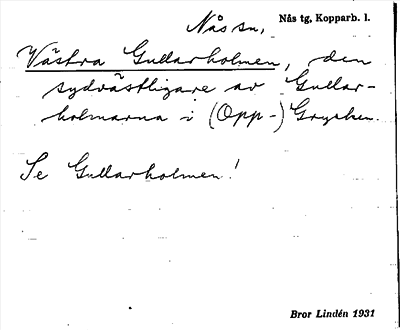 Nås sn. Nås tg, Kopparb. l.
Västra Gullarholmen, den
sydvästligare av Gullar-
holmarna i (Opp-)Grycken.
Se Gullarholmen!
Bror Lindén 1931